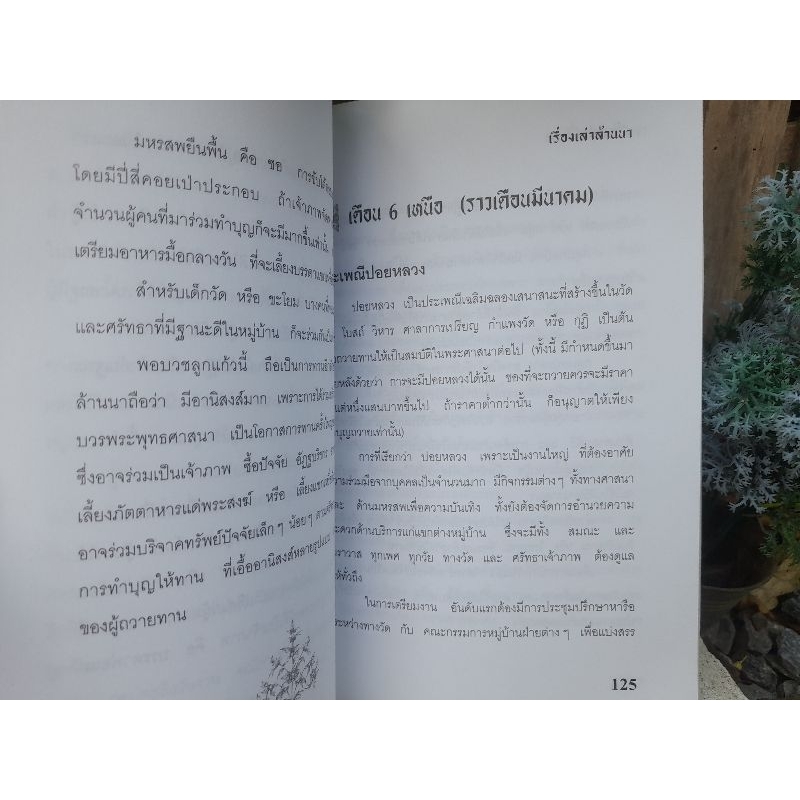 มหรสพยืนพื้น คือ ซอ การขับ
โดยมีปี่สี่คอยเป่าประกอบ ถ้าเจ้าภาพ
จำนวนผู้คนที่มาร่วมทำบุญก็จะมีมากขึ้นเท่านั้น
เตรียมอาหารมื้อกลางวัน ที่จะเลี้ยงบรรดาแขก
สำหรับเด็กวัด หรือ ขะโยม บางคน
และศรัทธาที่มีฐานะดีในหมู่บ้าน ก็จะร่วมกัน
พอบวชลูกแก้วนี้ ถือเป็นการทาน
ล้านนาถือว่า มีอานิสงส์มาก เพราะการได้
บวรพระพุทธศาสนา เป็นโอกาสการทานครั้ง
ซึ่งอาจร่วมเป็นเจ้าภาพ ซื้อปัจจัย อัฏฐบริขาร
เลี้ยงภัตตาหารแด่พระสงฆ์ หรือ เลี้ยงแขก
อาจร่วมบริจาคทรัพย์ปัจจัยเล็กๆ น้อยๆ ตาม
การทำบุญให้ทาน ที่เอื้ออานิสงส์หลายรูปแบบ
ของผู้ถวายทาน
เรื่องเล่าล้านนา
เดือน 6 เหนือ (ราวเดือนมีนาคม)
ะเพณีปอยหลวง
ปอยหลวง เป็นประเพณีเฉลิมฉลองเสนาสนะที่สร้างขึ้นในวัด
โบสถ์ วิหาร ศาลาการเปรียญ กำแพงวัด หรือ กุฏิ เป็นต้น
ถวายทานให้เป็นสมบัติในพระศาสนาต่อไป (ทั้งนี้ มีกำหนดขึ้นมา
ยหลังด้วยว่า การจะมีปอยหลวงได้นั้น ของที่จะถวายควรจะมีราคา
แต่หนึ่งแสนบาทขึ้นไป ถ้าราคาต่ำกว่านั้น ก็อนุญาตให้เพียง
บุญถวายเท่านั้น)
การที่เรียกว่า ปอยหลวง เพราะเป็นงานใหญ่ ที่ต้องอาศัย
วามร่วมมือจากบุคคลเป็นจำนวนมาก มีกิจกรรมต่างๆ ทั้งทางศาสนา
และ ด้านมหรสพเพื่อความบันเทิง ทั้งยังต้องจัดการอำนวยความ
ะดวกด้านบริการแก่แขกต่างหมู่บ้าน ซึ่งจะมีทั้ง สมณะ และ
ราวาส ทุกเพศ ทุกวัย ทางวัด และ ศรัทธาเจ้าภาพ ต้องดูแล
ห้ทั่วถึง
ในการเตรียมงาน อันดับแรกต้องมีการประชุมปรึกษาหารือ
ระหว่างทางวัด กับ คณะกรรมการหมู่บ้านฝ่ายต่างๆ เพื่อแบ่งสรร
125